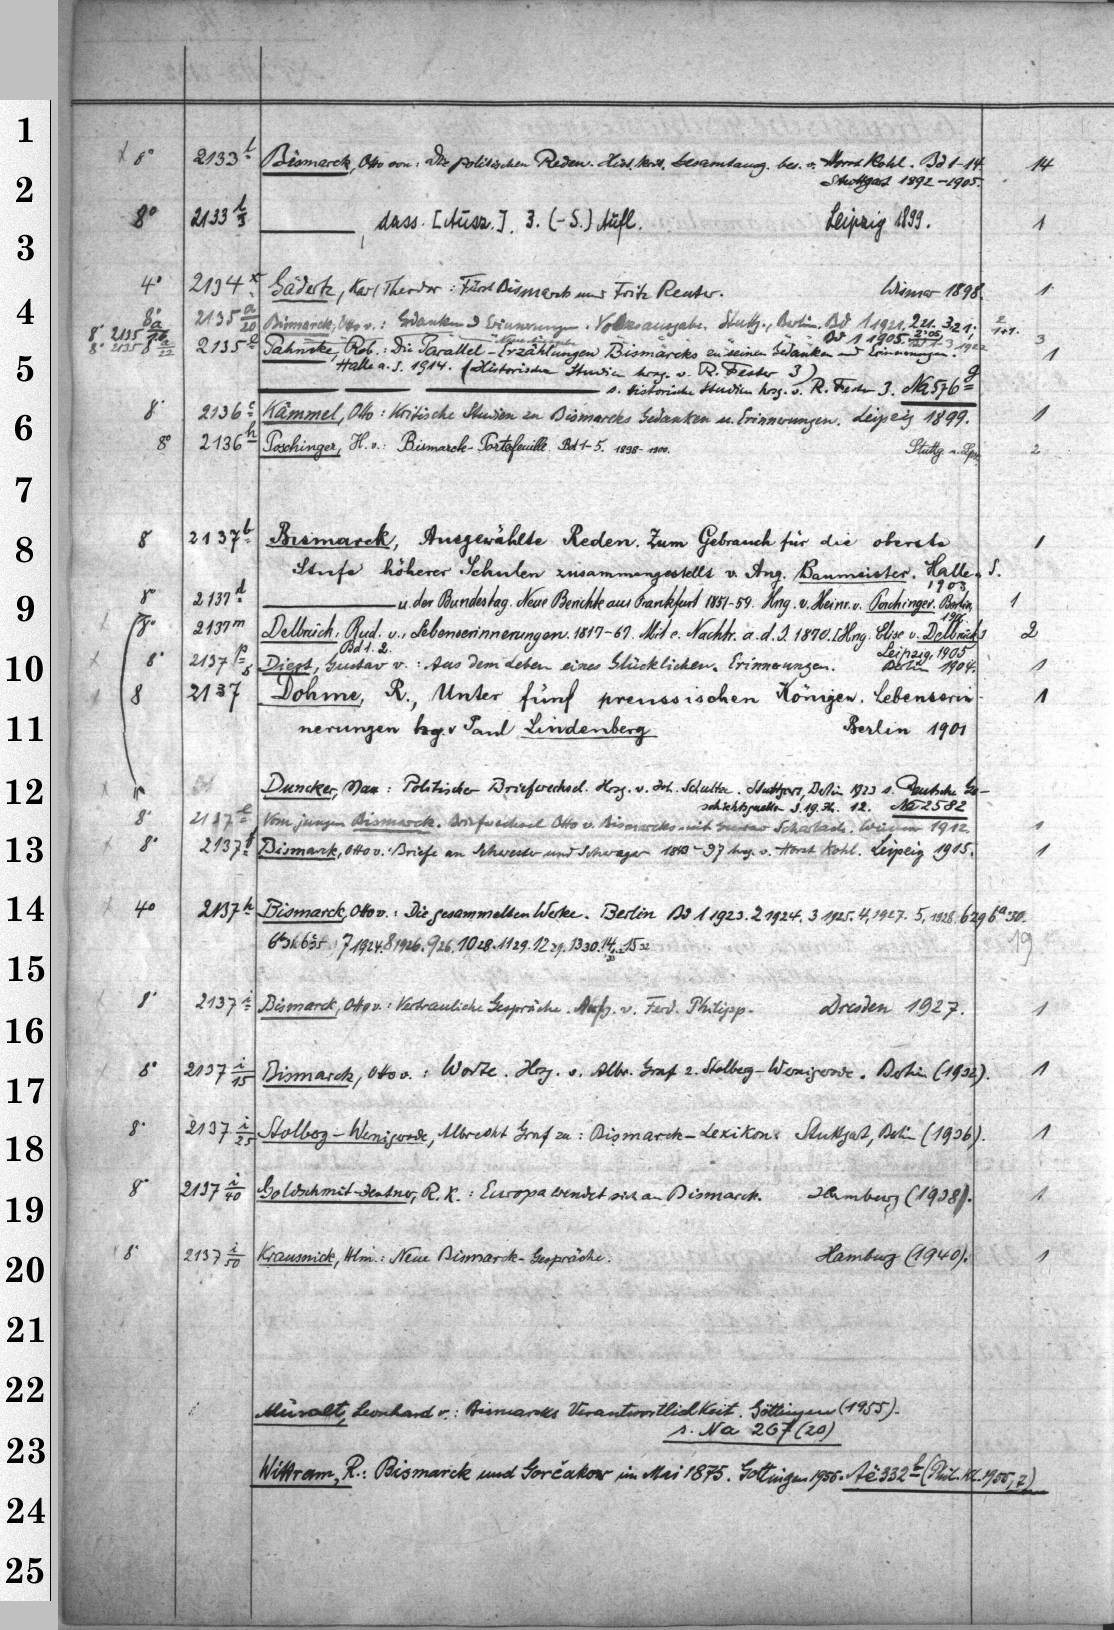 1
8° 2133 l Bismarck, Otto von: Die politischen Reden. Hist. krit. Gesamtausg. bes. v. Horst Kohl. Bd 1-14 14
2
Stuttgart 1892-1905.
8° 2133 l/3 ———, dass. [Ausz.]. 3. (-5.) Aufl. Leipzig 1899. 1
3
4° 2134 x Gädertz, Karl Theodor: Fürst Bismarck und Fritz Reuter. Wismar 1898. 1
4
2135 a/20 Bismarck, Otto v.: Gedanken u. Erinnerungen. Volksausgabe. Stuttg., Berlin. Bd 1 1921. 2 21. 3 21;
Bd 1 1905. 3
8° 2135 e Pahncke, Rob.: Die Parallel-Erzählungen Bismarcks zu seinen Gedanken und Erinnerungen. 1
5
Halle a. S. 1914. (Historische Studien hrsg. v. R. Fester 3)
s. Historische Studien hrsg. v. R. Fester 3. Na 576 g
8° 2136 c Kämmel, Otto: Kritische Studien zu Bismarcks Gedanken u. Erinnerungen. Leipzig 1899. 1
6
8° 2136 h Poschinger, H. v.: Bismarck-Portefeuille. Bd 1-5. 1898-1900. Stuttg. u. Lpz. 2
7
8 2137 b Bismarck, Ausgewählte Reden. Zum Gebrauch für die oberste 1
8
Stufe höherer Schulen zusammengestellt v. Aug. Baumeister. Halle a. S.
1903
8° 2137 d ——— u. der Bundestag. Neue Berichte aus Frankfurt 1851-59. Hrsg. v. Heinr. v. Poschinger. Berlin, 1
9
8° 2137 m Delbrück, Rud. v., Lebenserinnerungen. 1817-67. Mit e. Nachtr. a. d. J. 1870. [Hrsg. Elise v. Delbrück] 2
Bd 1. 2. Leipzig, 1905
10
8° 2137 p/5 Diest, Gustav v.: Aus dem Leben eines Glücklichen. Erinnerungen. Berlin 1904. 1
8 2137 Dohme, R., Unter fünf preussischen Königen. Lebenserin- 1
11
nerungen hrsg. v Paul Lindenberg Berlin 1901
12
Duncker, Max: Politischer Briefwechsel. Hrsg. v. Joh. Schultze. Stuttgart, Berlin 1923 s. Deutsche Ge-
schichtsquellen d. 19. Jh. 12. Na 2582
8° 2137 e Vom jungen Bismarck. Briefwechsel Otto v. Bismarcks mit Gustav Scharlach. Weimar 1912. 1
13
8° 2137 f Bismarck, Otto v.: Briefe an Schwester und Schwager 1843-97 hrsg. v. Horst Kohl. Leipzig 1915. 1
14
4° 2137 h Bismarck, Otto v.: Die gesammelten Werke. Berlin Bd 1 1923. 2 1924. 3 1925. 4, 1927. 5, 1928. 6 29 6a 30.
7 1924. 8 1926. 9 26. 10 28. 11 29. 12 29. 13 30. 14, 15 32 19
15
8° 2137 i Bismarck, Otto v.: Vertrauliche Gespräche. Aufz. v. Ferd. Philipp. Dresden 1927. 1
16
8° 2137 i/15 Bismarck, Otto v.: Worte. Hrsg. v. Albr. Graf z. Stolberg-Wernigerode. Berlin (1932). 1
17
8° 2137 i/25 Stolberg-Wernigerode, Albrecht Graf zu: Bismarck-Lexikon. Stuttgart, Berlin (1936). 1
18
8° 2137 i/40 Goldschmit-Jentner, R. K.: Europa wendet sich an Bismarck. Hamburg (1938). 1
19
8° 2137 i/50 Krausnick, Hlm.: Neue Bismarck-Gespräche. Hamburg (1940). 1
20
21
22
Muralt, Leonhard v.: Bismarcks Verantwortlichkeit. Göttingen (1955).
s. Na 267 (20)
23
Wittram, R.: Bismarck und Gorčakow im Mai 1875. Göttingen 1955. Ae 332 b (Phil. Kl. 1955, 7)
24
25